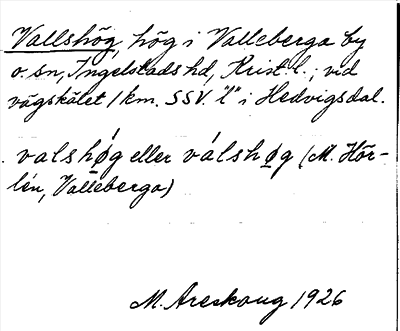 Vallshög, hög i Valleberga by
o. sn, Ingelstads hd, Krist. l.; vid
vägskälet 1 km. SSV. "l" i Hedvigsdal.
valshǿg eller válshøg (M. Hör-
lén, Valleberga)
M. Areskoug 1926